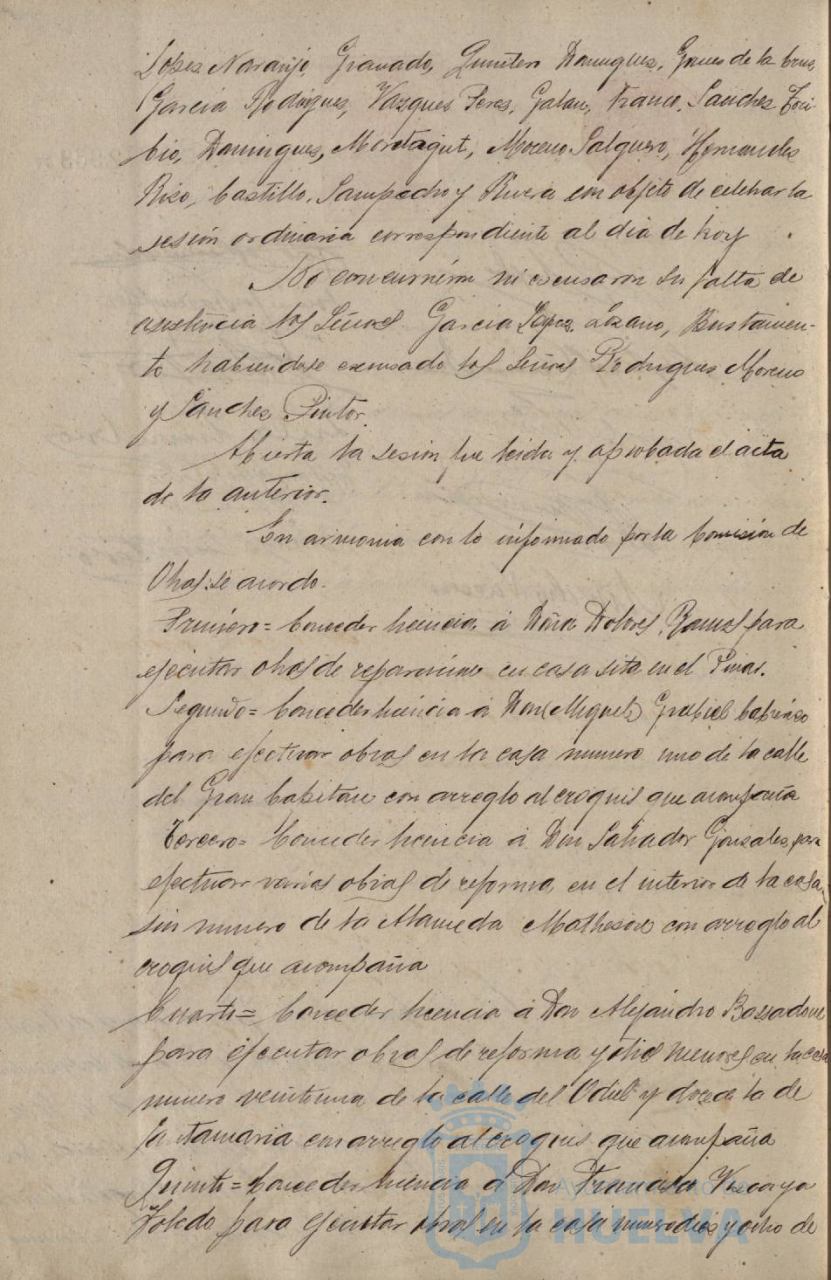 Lopez Naranjo, Granado, Quintero Dominguez, Gomez de la Cruz,
Garcia Rodriguez, Vazquez Perez, Galan, Franco, Sanchez Tori-
bio, Dominguez, Montagut, Moreno Salguero, Hernandez
Rizo, Castillo, Sampedro y Rivera con objeto de celebrar la
sesión ordinaria correspondiente al dia de hoy.
No concurrieron ni escusaron su falta de
asistencia los Señores Garcia Lopez, Lozano, Bustamen-
te habiendose escusado los Señores Rodriguez Moreno
y Sanchez Pintor.
Abierta la sesión fue leida y aprobada el acta
de la anterior.
En armonia con lo informado por la Comisión de
Obras se acordo.
Primero= Conceder licencia á Doña Dolores para
ejecutar obras de reparación en casa sita en el
Segundo= Conceder licencia á Don Miguel
para efectuar obras en la casa numero uno de la calle
del Gran Capitan con arreglo al croquis que acompaña
Tercero= Conceder licencia á Don Salvador Gonzalez para
efectuar varias obras de reforma en el interior de la casa
sin numero de la Alameda Matheson con arreglo al
croquis que acompaña
Cuarto= Conceder licencia á Don Alejandro
para ejecutar obras de reforma y otras menores en la casa
numero veintiuna de la calle del Odiel y doce de la de
la Marina con arreglo al croquis que acompaña
Quinto= Conceder licencia á Don Francisco Vizcaya
Toledo para ejecutar obras en la casa numero diez y ocho de
HUELVA